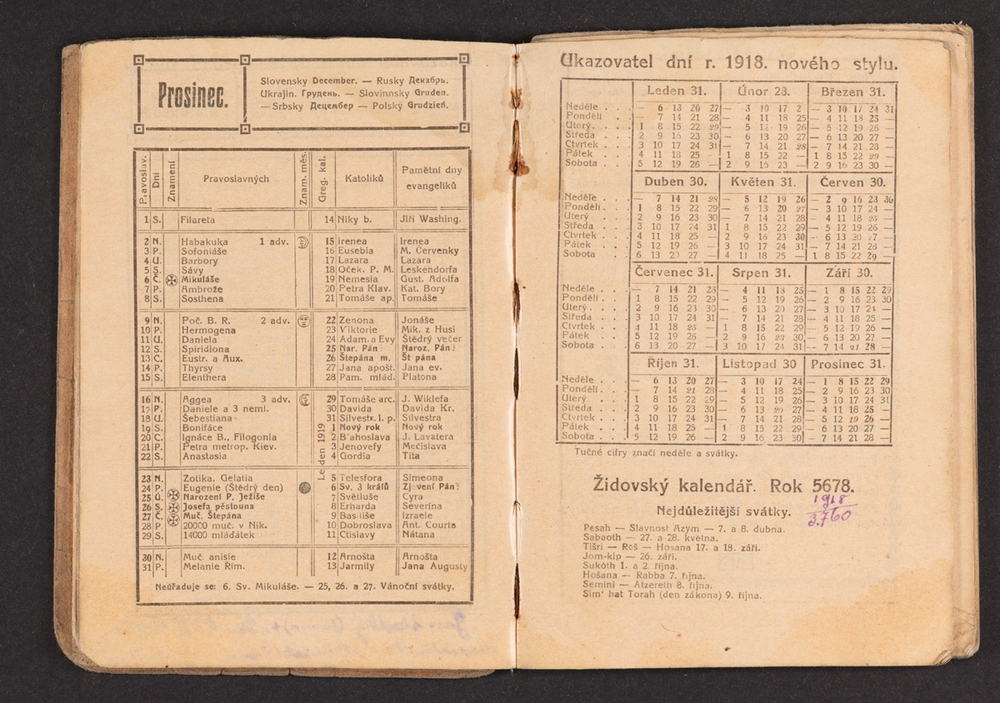 Prosinec.
Slovensky December. — Rusky Декабрь.
Ukrajin. Грудень. — Slovinnsky Gruden.
— Srbsky Децембер — Polský Grudzień.
Pravoslav. Dni Znamení Pravoslavných Znam. měs. Greg. kal. Katolíků Pamětní dny evangelíků
1 S. Filareta 14 Niky b. Jiří Washing.
2 N. Habakuka 1 adv. 15 Irenea Irenea
3 P. Sofoniáše 16 Eusebia M. Červenky
4 U. Barbory 17 Lazara Lazara
5 S. Sávy 18 Oček. P. M. Leskendorfa
6 Č. Mikuláše 19 Nemesia Gust. Adolfa
7 P. Ambrože 20 Petra Klav. Kat. Bory
8 S. Sosthena 21 Tomáše ap. Tomáše
9 N. Poč. B. R. 2 adv. 22 Zenona Jonáše
10 P. Hermogena 23 Viktorie Mik. z Husi
11 U. Daniela 24 Adam. a Evy Štědrý večer
12 S. Spiridiona 25 Nar. Pán Naroz. Pán
13 C. Eustr. a Aux. 26 Štepána m. Št pána
14 P. Thyrsy 27 Jana apošt. Jana ev.
15 S. Elenthera 28 Pam. mlád. Platona
16 N. Aggea 3 adv. 29 Tomáše arc. J. Wiklefa
17 P. Daniele a 3 neml. 30 Davida Davida Kr.
18 U. Šebestiana 31 Silvestr. I. p. Silvestra
19 S. Bonifáce 1 Nový rok Nový rok
20 Č. Ignáce B., Filogonia 2 B'ahoslava J. Lavatera
21 P. Petra metrop. Kiev. 3 Jenovefy Mečislava
22 S. Anastasia 4 Gordia Tita
Leden 1919
23 N. Zotika. Gelatia 5 Telesfora Simeona
24 P. Eugenie (Štědrý den) 6 Sv. 3 králů Zjevení Pán
25 Ú. Narození P. Ježíše 7 Světluše Cyra
26 S. Josefa pěstouna 8 Erharda Severina
27 Č. Muč. Štěpána 9 Basilíše Izraele
28 P 20000 muč. v Nik. 10 Dobroslava Ant. Courta
29 S. 14000 mládátek 11 Ctislavy Nátana
30 N. Muč. anisie 12 Arnošta Arnošta
31 P. Melanie Řím. 13 Jarmily Jana Augusty
Neúřaduje se: 6. Sv. Mikuláše. — 25, 26. a 27. Vánoční svátky.
Ukazovatel dní r. 1918. nového stylu.
Leden 31. Únor 28. Březen 31.
Neděle . . . — 6 13 20 27 — 3 10 17 2 — 3 10 17 24 31
Pondělí . . — 7 14 21 28 — 4 11 18 25 — 4 11 18 25 —
Úterý. . . . 1 8 15 22 29 — 5 12 19 26 — 5 12 19 26 —
Středa . . . 2 9 16 23 30 — 6 13 20 27 — 6 13 20 27 —
Čtvrtek . . 3 10 17 24 31 — 7 14 21 28 — 7 14 21 28 —
Pátek . . . 4 11 18 25 — 1 8 15 22 — 1 8 15 22 29 —
Sobota . . . 5 12 19 26 — 2 9 16 23 — 2 9 16 23 30 —
Duben 30. Květen 31. Červen 30.
Neděle . . . — 7 14 21 28 — 5 12 19 26 — 2 9 16 23 30
Pondělí. . . 1 8 15 22 29 — 6 13 20 27 — 3 10 17 24 —
Úterý . . . 2 9 16 23 30 — 7 14 21 28 — 4 11 18 25 —
Středa . . . 3 10 17 24 31 1 8 15 22 29 — 5 12 19 26 —
Čtvrtek . . 4 11 18 25 — 2 9 16 23 30 — 6 13 20 27 —
Pátek . . . 5 12 19 26 — 3 10 17 24 31 — 7 14 21 28 —
Sobota . . . 6 13 20 27 — 4 11 18 25 — 1 8 15 22 29 —
Červenec 31. Srpen 31. Září 30.
Neděle . . . — 7 14 21 28 — 4 11 18 25 — 1 8 15 22 29
Pondělí . . 1 8 15 22 29 — 5 12 19 26 — 2 9 16 23 30
Úterý. . . . 2 9 16 23 30 — 6 13 20 27 — 3 10 17 24 —
Středa . . . 3 10 17 24 31 — 7 14 21 28 — 4 11 18 25 —
Čtvrtek . . 4 11 18 25 — 1 8 15 22 29 — 5 12 19 26 —
Pátek . . . 5 12 19 26 — 2 9 16 23 30 — 6 13 20 27 —
Sobota . . . 6 13 20 27 — 3 10 17 24 31 — 7 14 21 28 —
Říjen 31. Listopad 30 Prosinec 31.
Neděle . . . — 6 13 20 27 — 3 10 17 24 — 1 8 15 22 29
Pondělí. . . — 7 14 21 28 — 4 11 18 25 — 2 9 16 23 30
Úterý . . . 1 8 15 22 29 — 5 12 19 26 — 3 10 17 24 31
Středa . . . 2 9 16 23 30 — 6 13 20 27 — 4 11 18 25 —
Čtvrtek . . 3 10 17 24 31 — 7 14 21 28 — 5 12 19 26 —
Pátek . . . 4 11 18 25 — 1 8 15 22 29 — 6 13 20 27 —
Sobota . . . 5 12 19 26 — 2 9 16 23 30 — 7 14 21 28 —
Tučné cifry značí neděle a svátky.
Židovský kalendář. Rok 5678.
1918
3.760
Nejdůležitější svátky.
Pesah — Slavnost Azym — 7. a 8. dubna.
Sabaoth — 27. a 28. května.
Tišri — Roš — Hosana 17. a 18. září.
Jom-kip — 26. září.
Sukóth 1. a 2. října.
Hošana — Rabba 7. října.
Semini — Atzereth 8. října.
Sim' hat Torah (den zákona) 9. října.